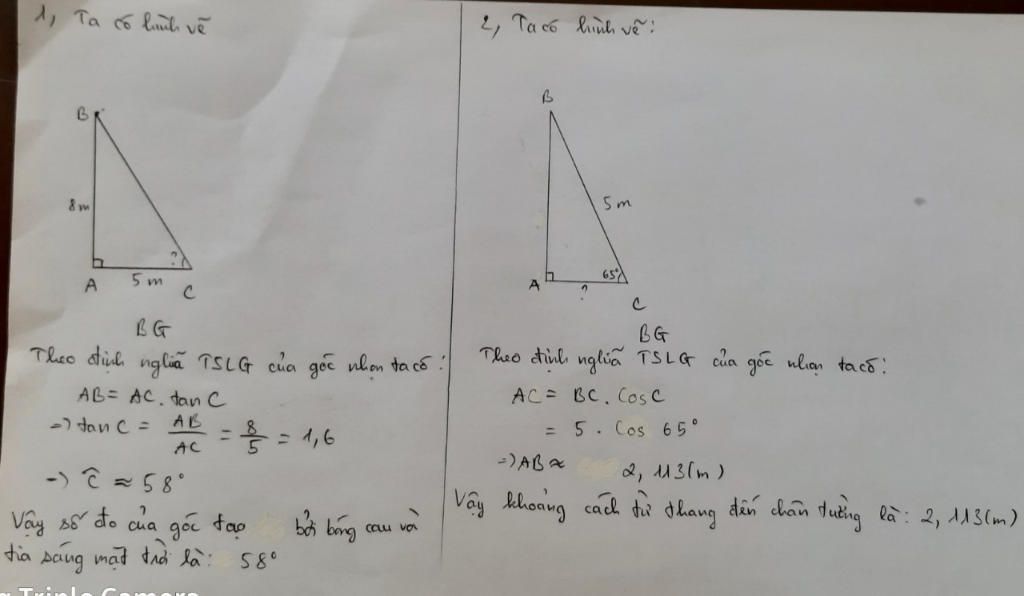 1, Ta có hình vẽ
B
8m
?
A
5 m
C
BG
Theo định nghĩa TSLG của góc nhọn ta có:
AB = AC . tan C
=> tan C = AB/AC = 8/5 = 1,6
=> Ĉ ≈ 58°
Vậy số đo của góc tạo bởi bóng cau và
tia sáng mặt trời là: 58°
2, Ta có hình vẽ:
B
5 m
65°
A
?
C
BG
Theo định nghĩa TSLG của góc nhọn ta có:
AC = BC . Cos C
= 5 . Cos 65°
=> AB ≈ 2,113(m)
Vậy khoảng cách từ thang đến chân tường là: 2,113(m)
Triple Camera